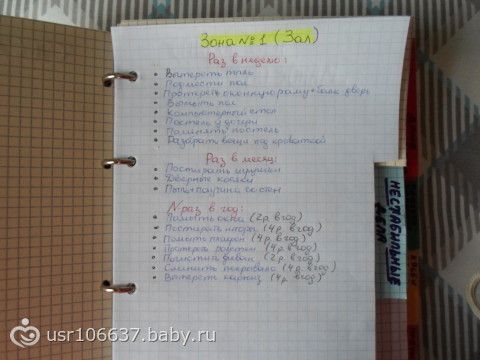 Зона №1 (Зал)
Раз в неделю:
Вытереть пыль
Подмести пол
Протереть оконную раму + балк. дверь
Вымыть пол
Компьютерный стол
Постель у дочери
Поменять постель
Разобрать вещи под кроваткой
Раз в месяц:
Постирать игрушки
Дверные косяки
Пыль + паутина со стен
N раз в год:
Помыть окна (2 р. в год)
Постирать шторы (4 р. в год)
Помыть плафон (4 р. в год)
Протереть (4 р. в год)
Почистить диван (2 р. в год)
Сменить покрывало (4 р. в год)
Вытереть карниз (4 р. в год)
НЕСТАБИЛЬНЫЕ
ДЕЛА
usr106637.baby.ru